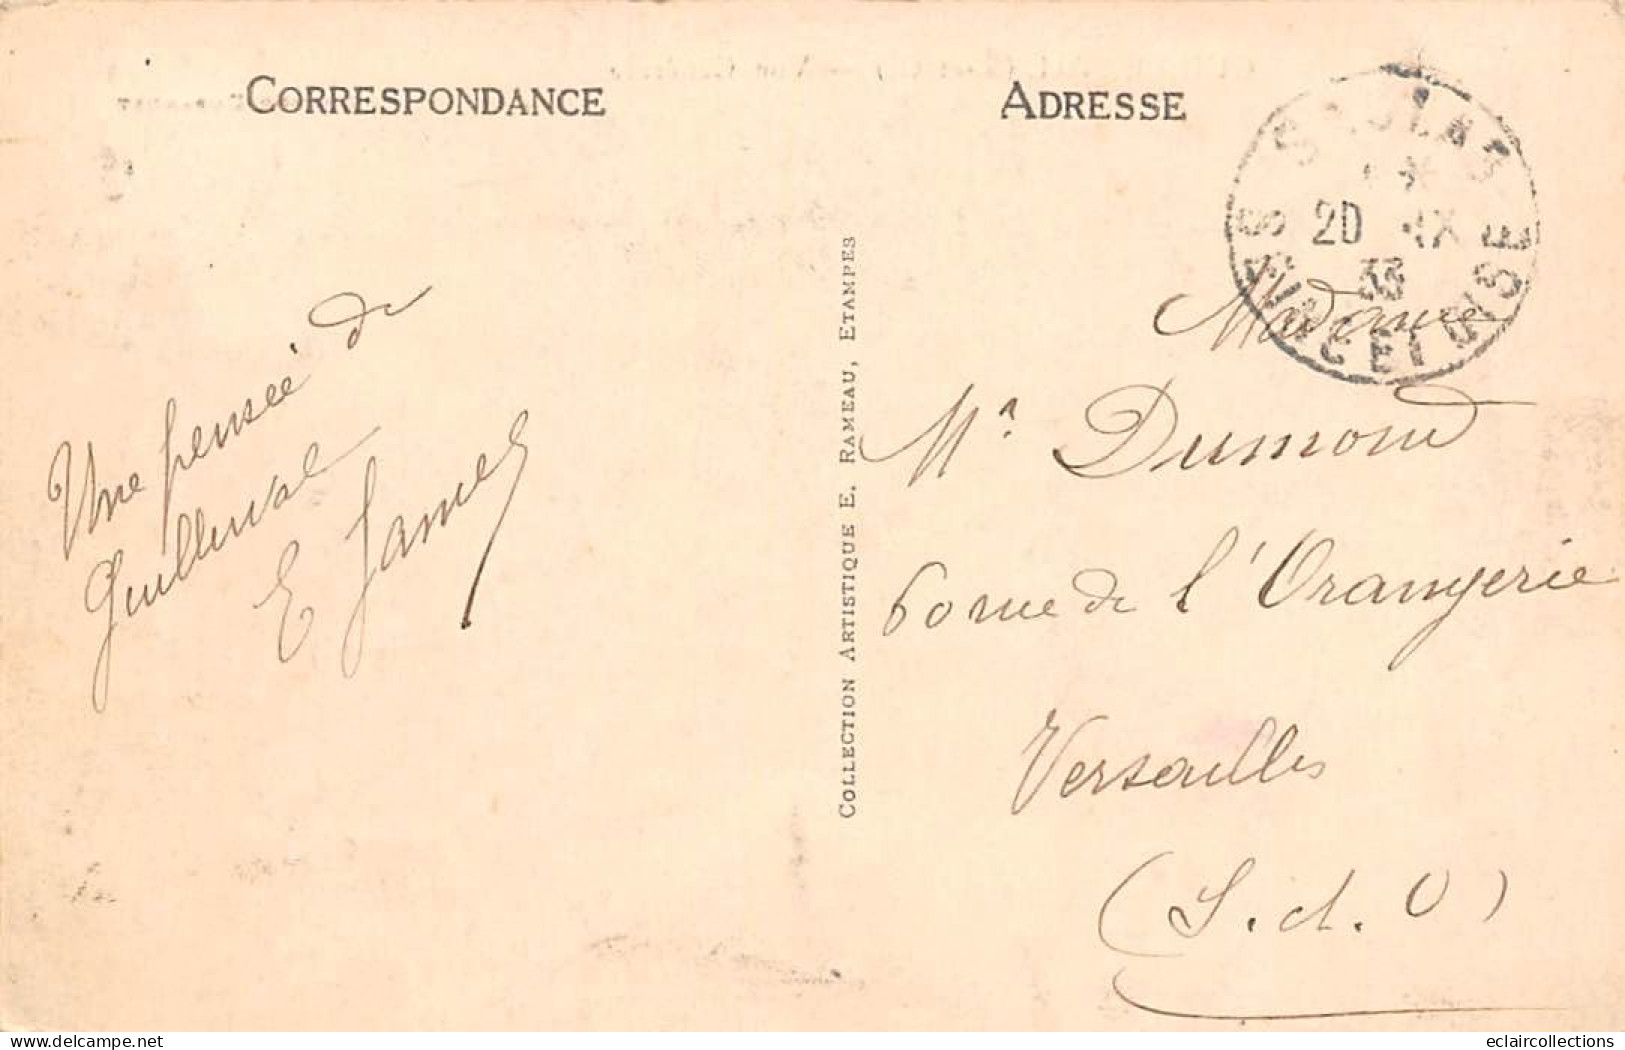 CORRESPONDANCE
ADRESSE
SACLAS
20 IX
33
SEINE ET OISE
Une pensée de
Guillerval
E James
COLLECTION ARTISTIQUE E. RAMEAU, ETAMPES
Madame
Mr Dumond
60 rue de l'Orangerie
Versailles
(S. d. O)
www.delcampe.net
eclaircollections